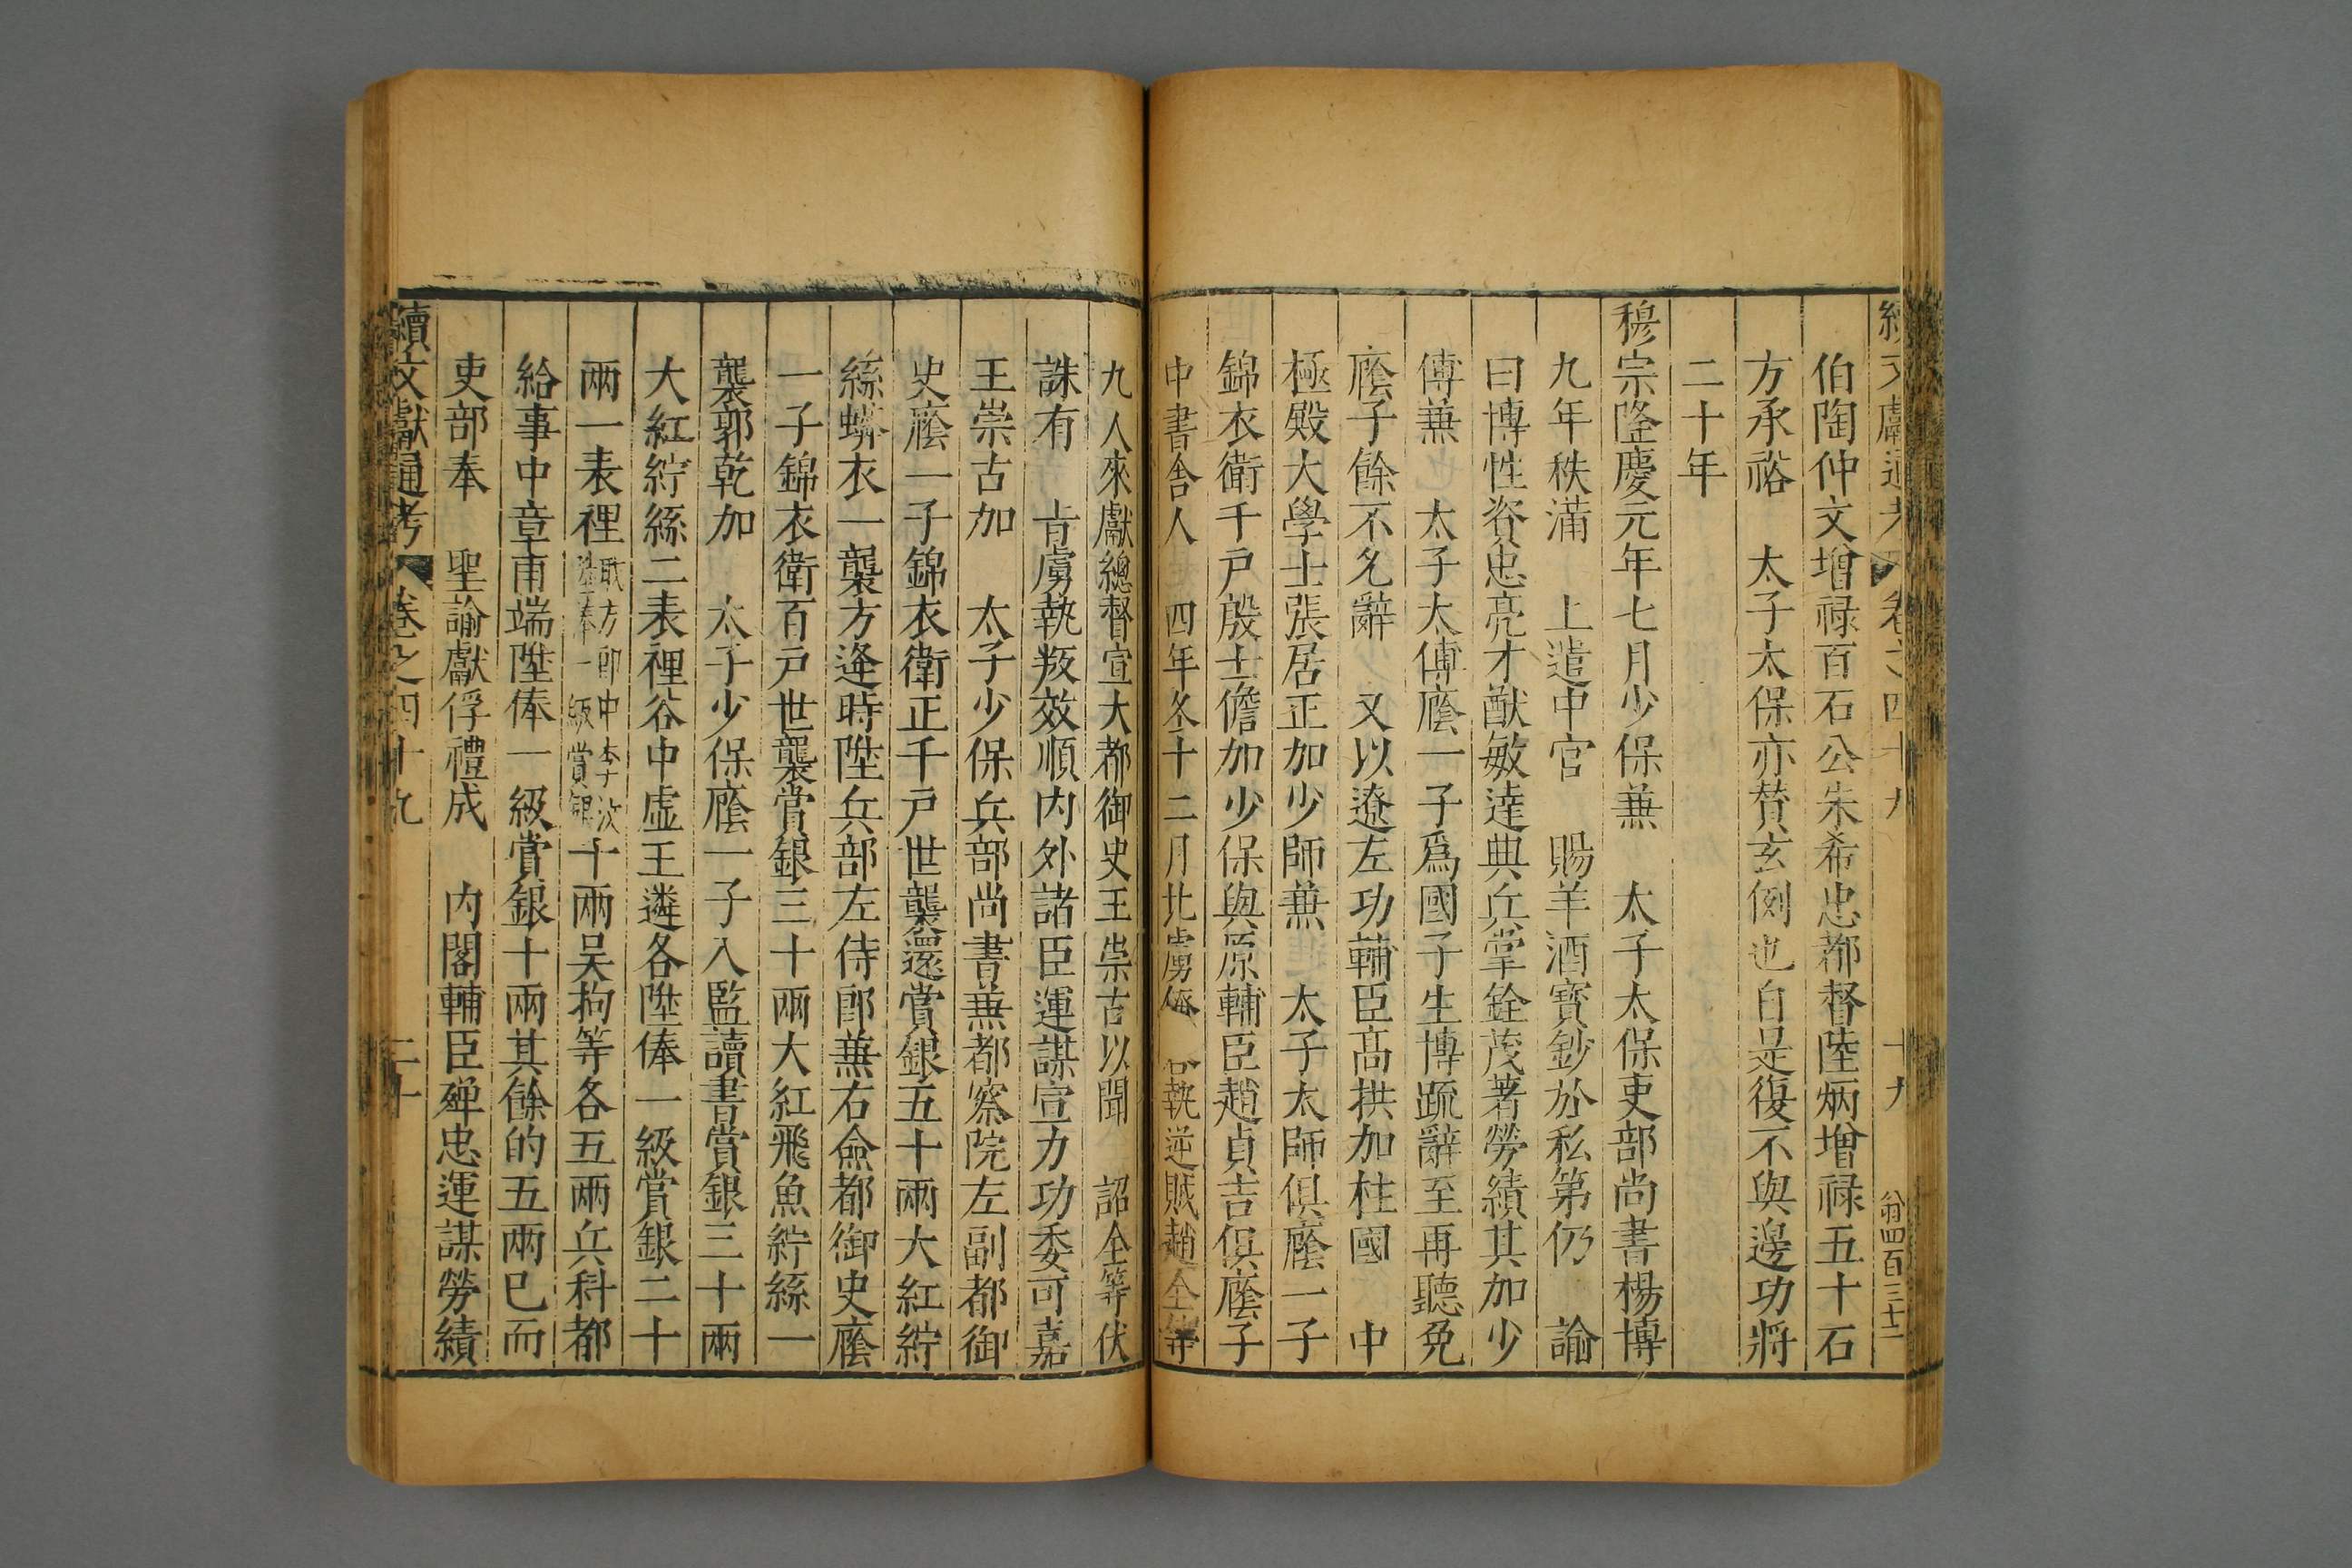 續文獻通考 卷之四十九 十九 翁四百三十二
伯陶仲文增祿百石公朱希忠都督陸炳增祿五十石
方承裕 太子太保亦贊玄例也自是復不與邊功將
二十年
穆宗隆慶元年七月少保兼 太子太保吏部尚書楊博
九年秩滿 上遣中官 賜羊酒寶鈔於私第仍 諭
曰博性資忠亮才猷敏達典兵掌銓茂著勞績其加少
傅兼 太子太傅廕一子爲國子生博疏辭至再聽免
廕子餘不允辭 又以遼左功輔臣高拱加柱國 中
極殿大學士張居正加少師兼 太子太師俱廕一子
錦衣衛千戶殷士儋加少保與原輔臣趙貞吉俱廕子
中書舍人 四年冬十二月北虜俺 執逆賊趙全等
九人來獻總督宣大都御史王崇古以聞 詔全等伏
誅有 旨虜執叛效順内外諸臣運謀宣力功委可嘉
王崇古加 太子少保兵部尚書兼都察院左副都御
史廕一子錦衣衛正千戶世襲還賞銀五十兩大紅紵
絲蟒衣一襲方逢時陞兵部左侍郎兼右僉都御史廕
一子錦衣衛百戶世襲賞銀三十兩大紅飛魚紵絲一
襲郭乾加 太子少保廕一子入監讀書賞銀三十兩
大紅紵絲二表裡谷中虛王遴各陞俸一級賞銀二十
兩一表裡職方郎中李汶陞奉一級賞銀十兩吴拘等各五兩兵科都
給事中章甫端陞俸一級賞銀十兩其餘的五兩已而
吏部奉 聖諭獻俘禮成 内閣輔臣殫忠運謀勞績
續文獻通考 卷之四十九 二十